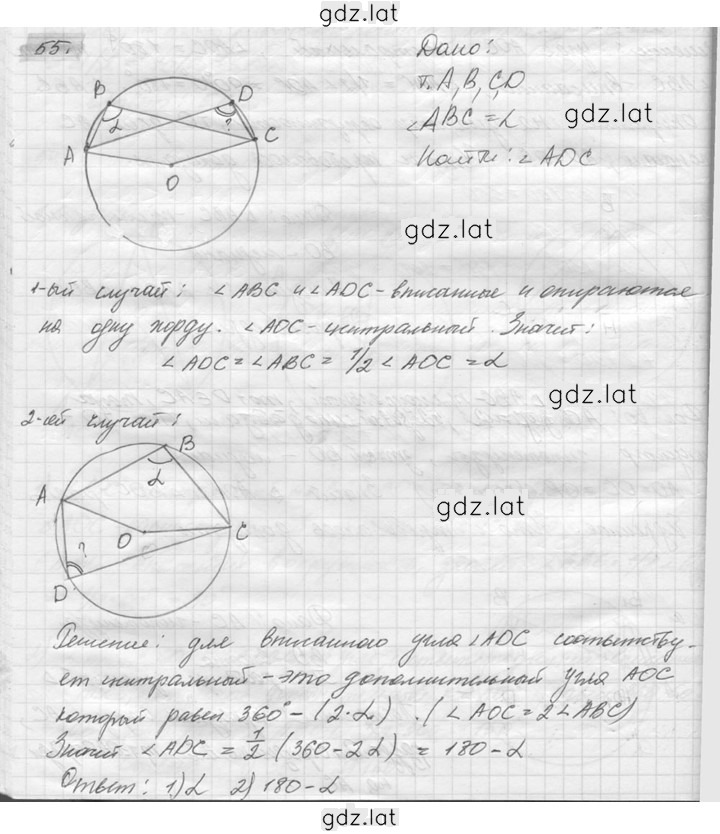 gdz.lat
55.
Дано:
т. A, B, C, D
gdz.lat
∠ABC = α
Найти: ∠ADC
B
D
α
?
A
C
O
gdz.lat
1-ый случай: ∠ABC и ∠ADC - вписанные и опираются
на одну хорду. ∠AOC - центральный. Значит:
∠ADC = ∠ABC = 1/2 ∠AOC = α
gdz.lat
2-ой случай:
B
α
A
O
C
?
D
gdz.lat
Решение: для вписанного угла ∠ADC соответству-
ет центральный - это дополнительный угла AOC
который равен 360° - (2·α). (∠AOC = 2∠ABC)
Значит ∠ADC = 1/2 (360 - 2α) = 180 - α
Ответ: 1) α 2) 180 - α
gdz.lat